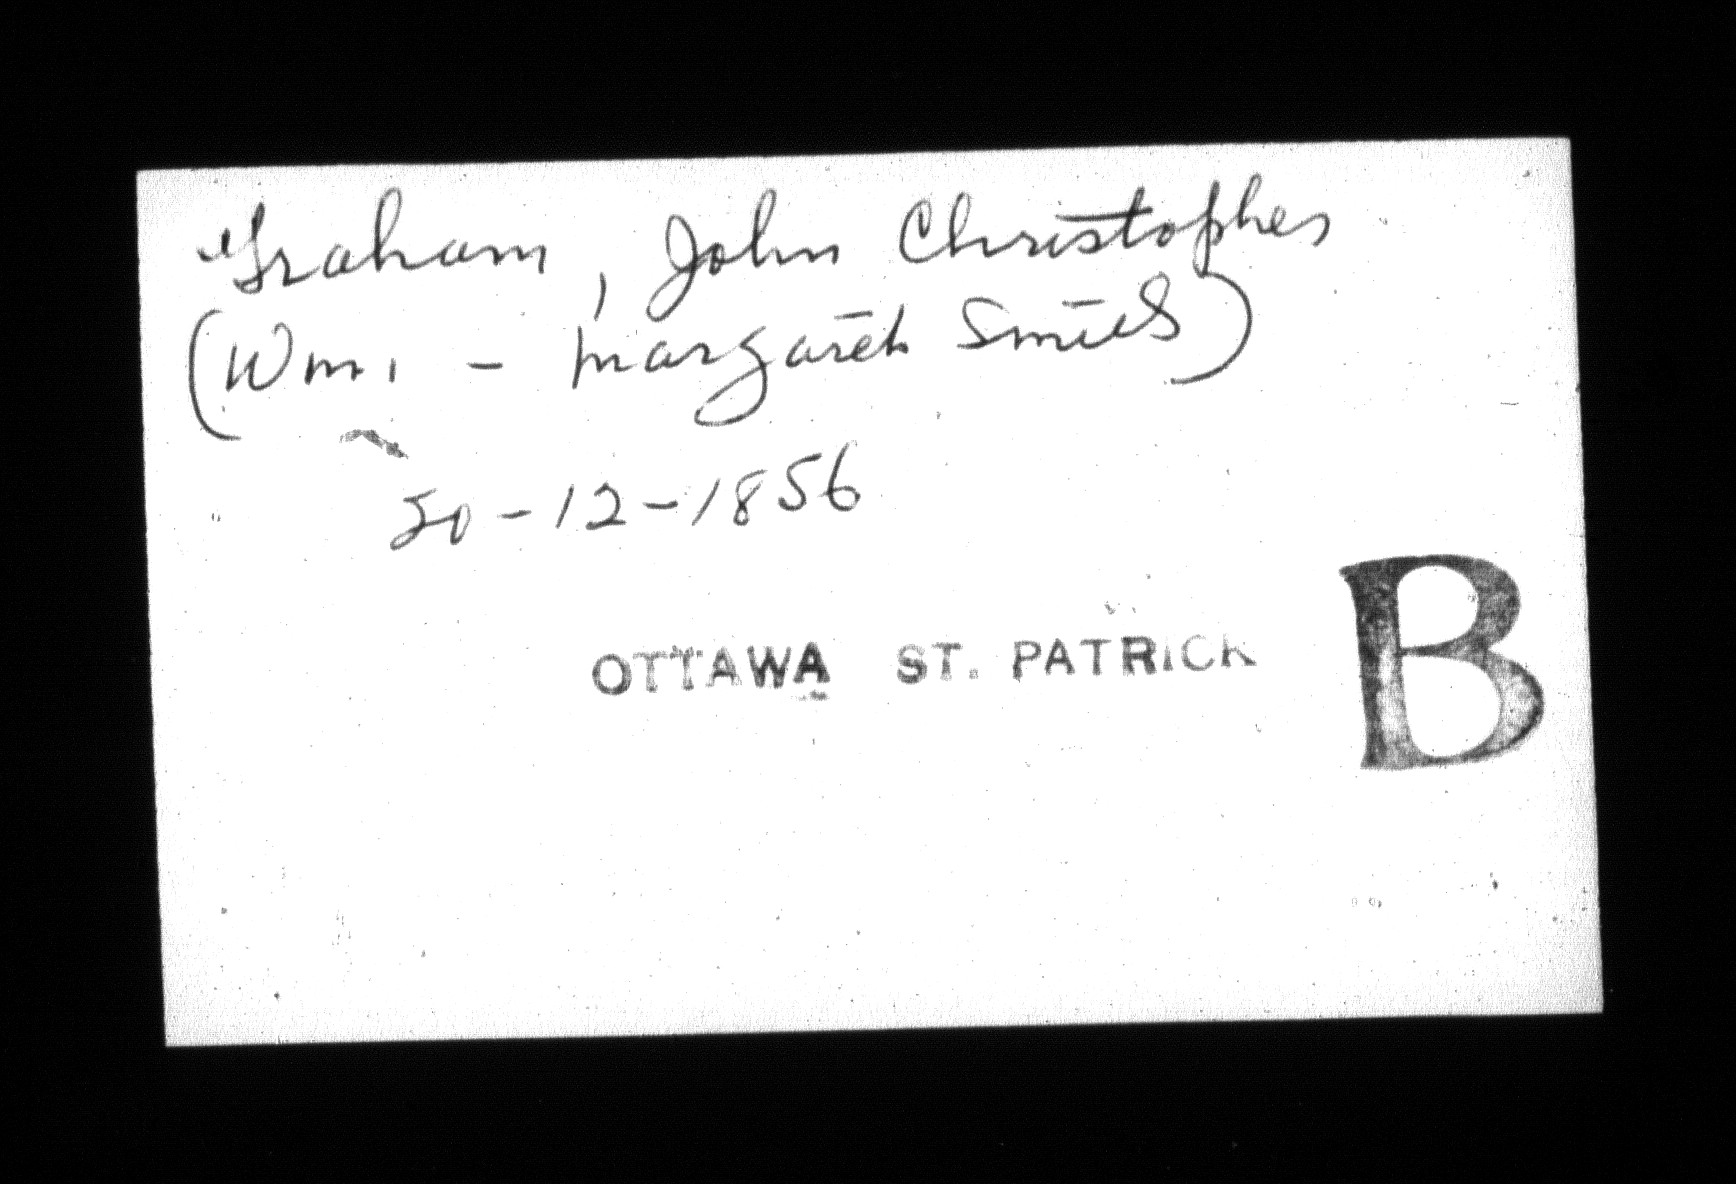 Graham, John Christopher
(Wm. - Margaret Smith)
30-12-1856
OTTAWA ST. PATRICK
B